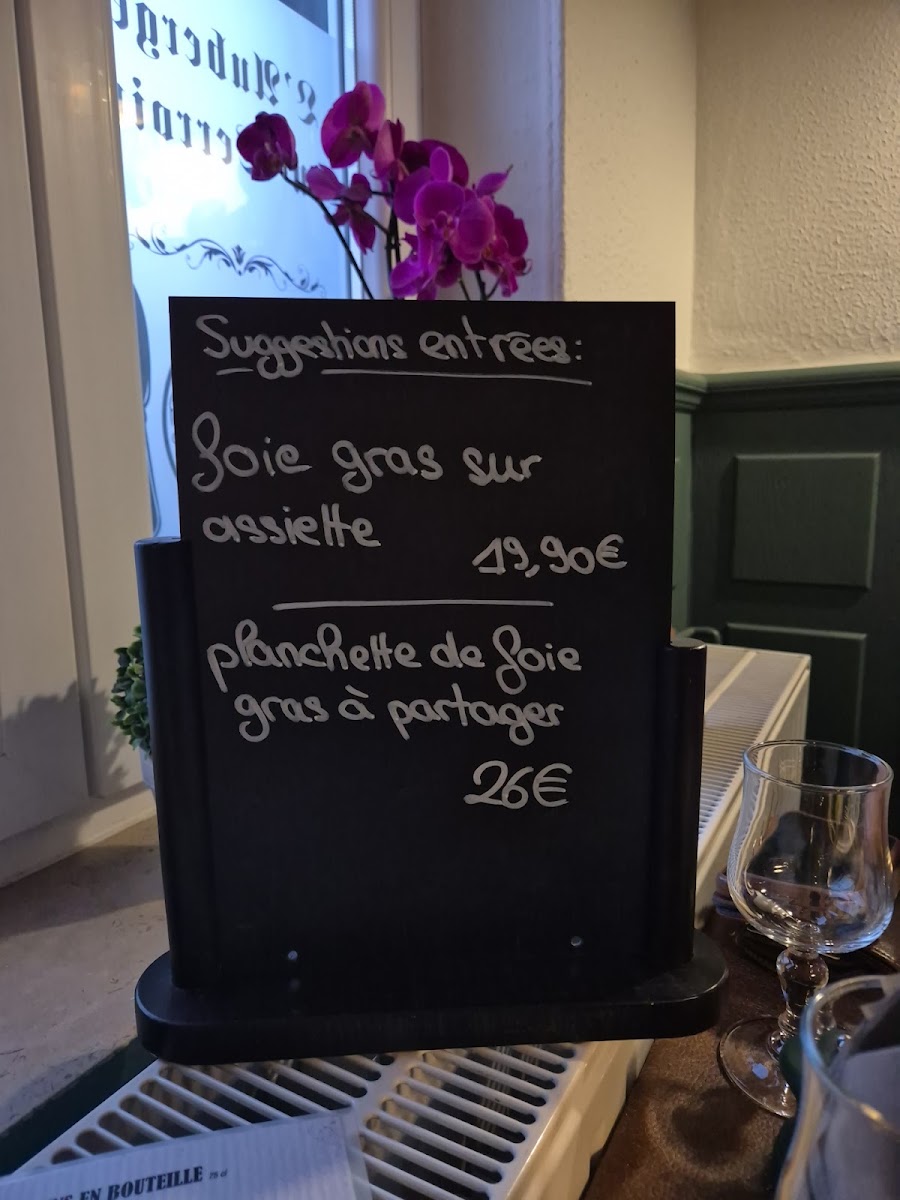 L'Auberge
Suggestions entrées:
Foie gras sur
assiette
19,90€
planchette de foie
gras à partager
26€
EN BOUTEILLE 75 cl